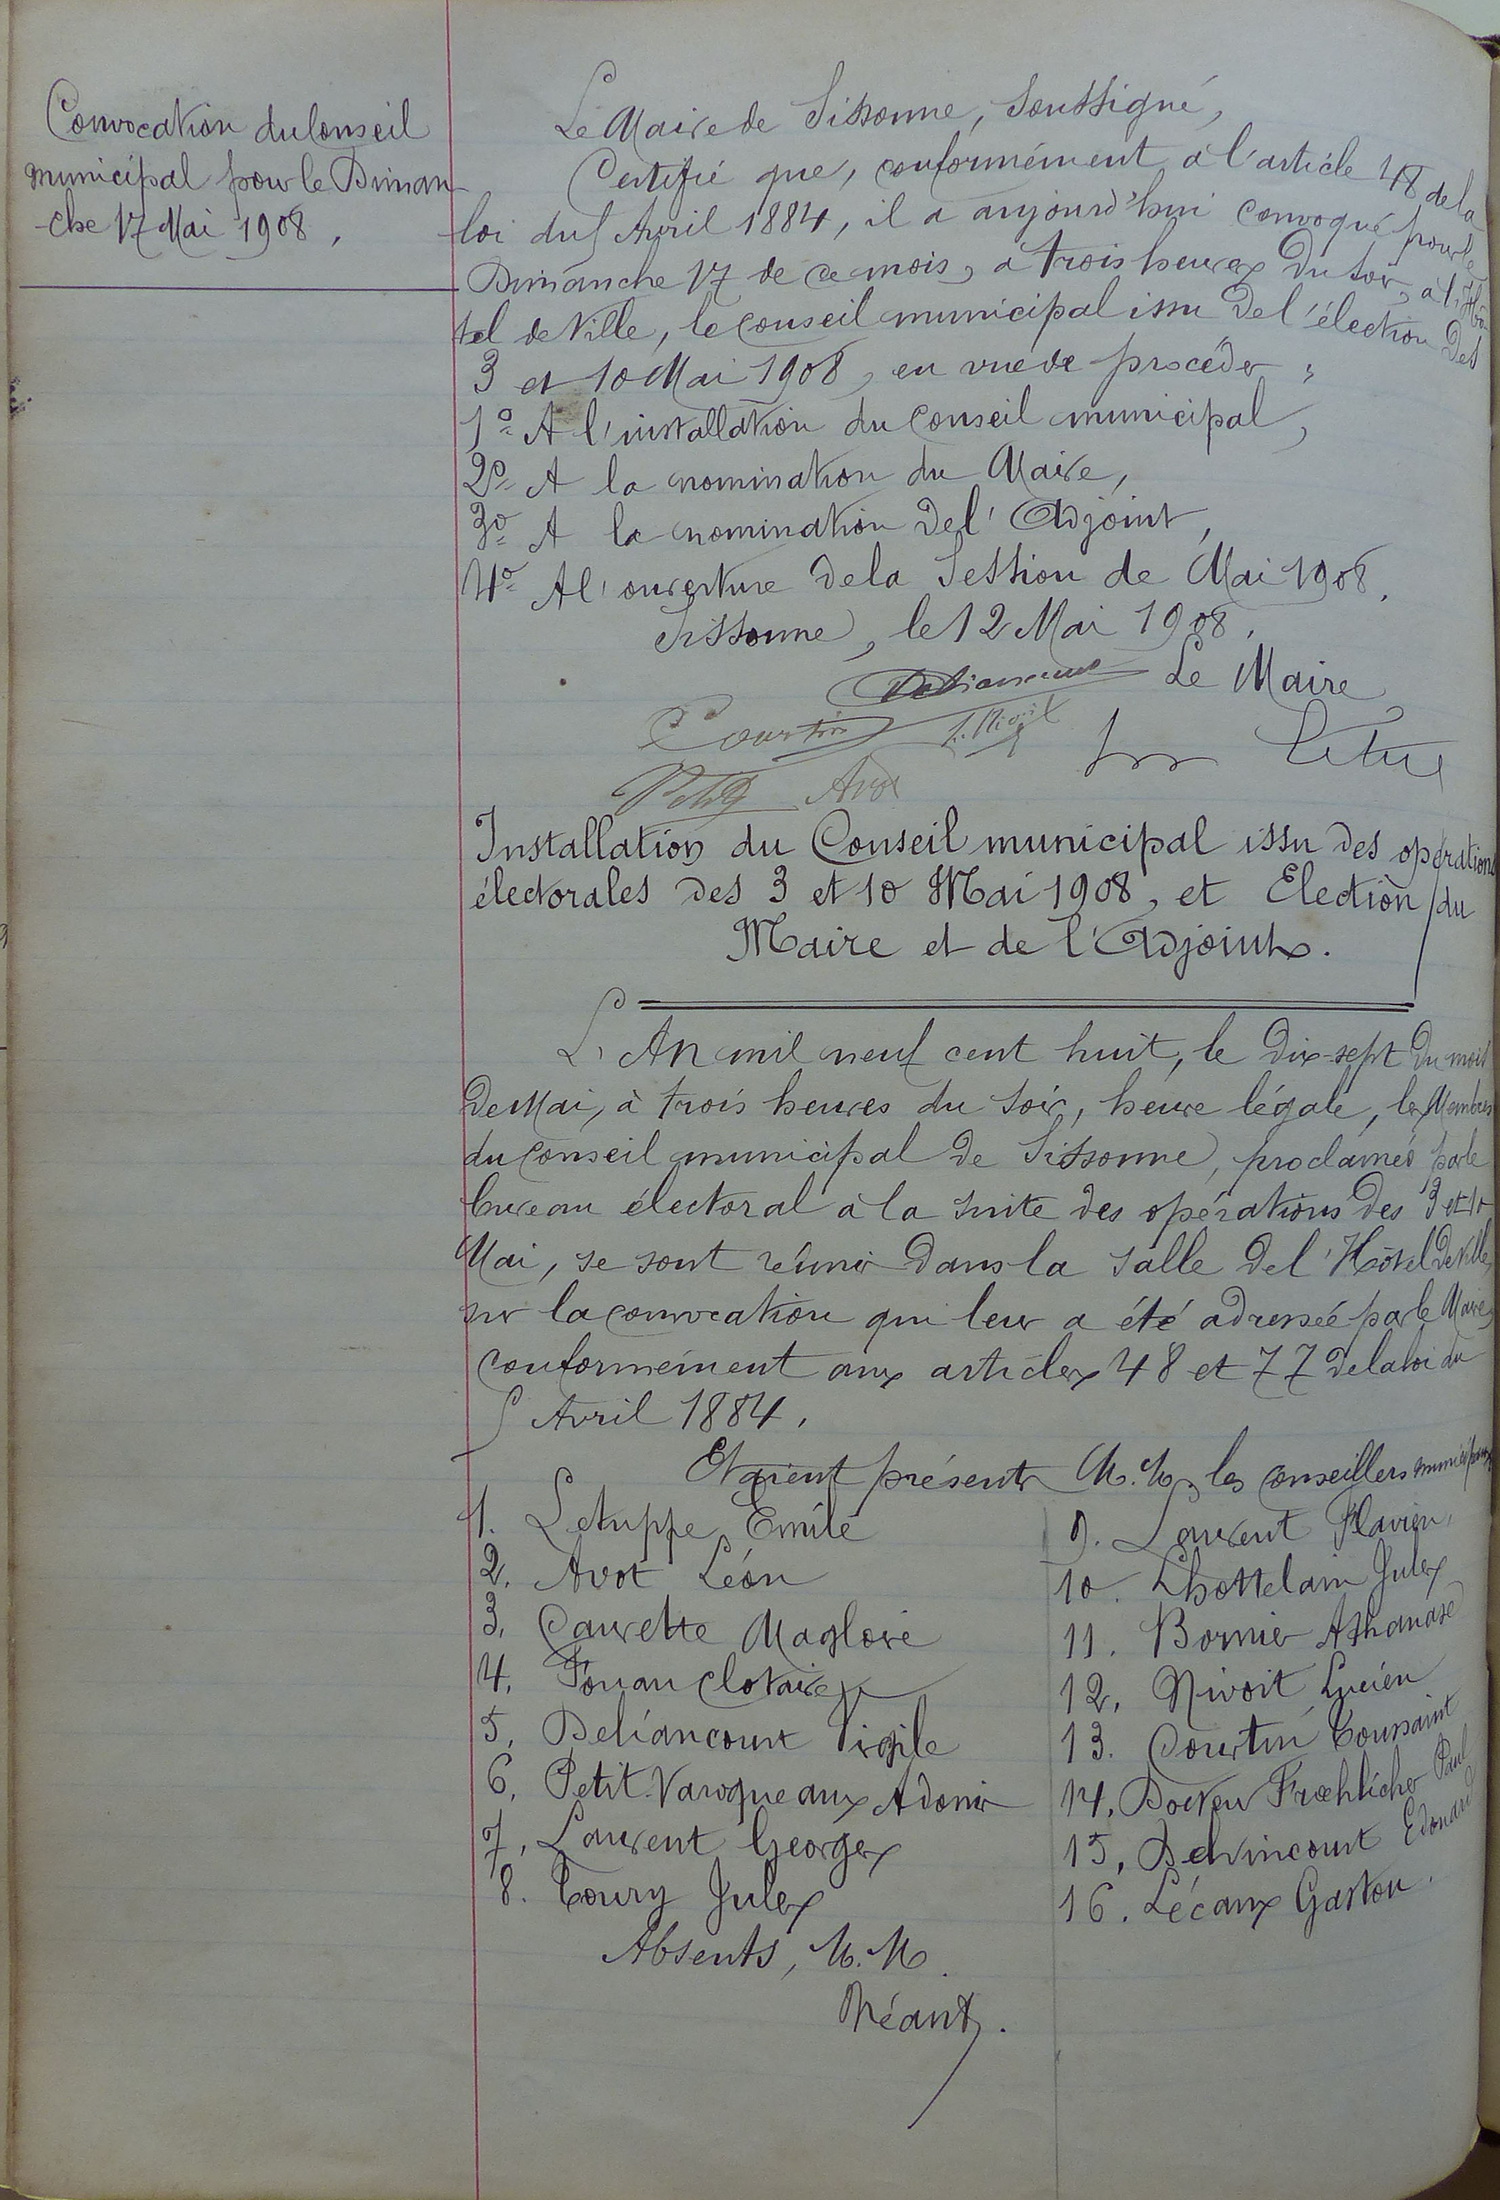 Convocation du Conseil
municipal pour le Diman
-che 17 Mai 1908.
Le Maire de Sissonne, soussigné,
Certifié que, conformément à l'article 48 de la
loi du 5 Avril 1884, il a aujourd'hui convoqué pour le
Dimanche 17 de ce mois, à trois heures du soir, à l'Hô-
tel de Ville, le Conseil municipal issu de l'élection des
3 et 10 Mai 1908, en vue de procéder :
1º A l'installation du Conseil municipal,
2º A la nomination du Maire,
3º A la nomination de l'Adjoint,
4º A l'ouverture de la Session de Mai 1908.
Sissonne, le 12 Mai 1908.
Le Maire,
Courtin
L. Nivoit
Petit Avot
Installation du Conseil municipal issu des opérations
électorales des 3 et 10 Mai 1908, et Election du
Maire et de l'Adjoint.
L'An mil neuf cent huit, le dix-sept du mois
de Mai, à trois heures du soir, heure légale, les Membres
du Conseil municipal de Sissonne, proclamés par le
bureau électoral à la suite des opérations des 3 et 10
Mai, se sont réunis dans la salle de l'Hôtel de Ville,
sur la convocation qui leur a été adressée par le Maire,
conformément aux articles 48 et 77 de la loi du
5 Avril 1884.
Etaient présents M.M. les conseillers municipaux
1. Letuppe Emile
2. Avot Léon
3. Caurette Magloire
4. Fouan Clotaire
5. Deliancourt Virgile
6. Petit-Varoqueaux Adonis
7. Laurent Georges
8. Toury Jules
9. Laurent Flavien,
10. Lhottelain Jules
11. Bornier Athanase
12. Nivoit Lucien
13. Courtin Toussaint
14. Docteur Froehlicher Paul
15. Delvincourt Edouard
16. Lécaux Gaston.
Absents, M.M.
Néant.